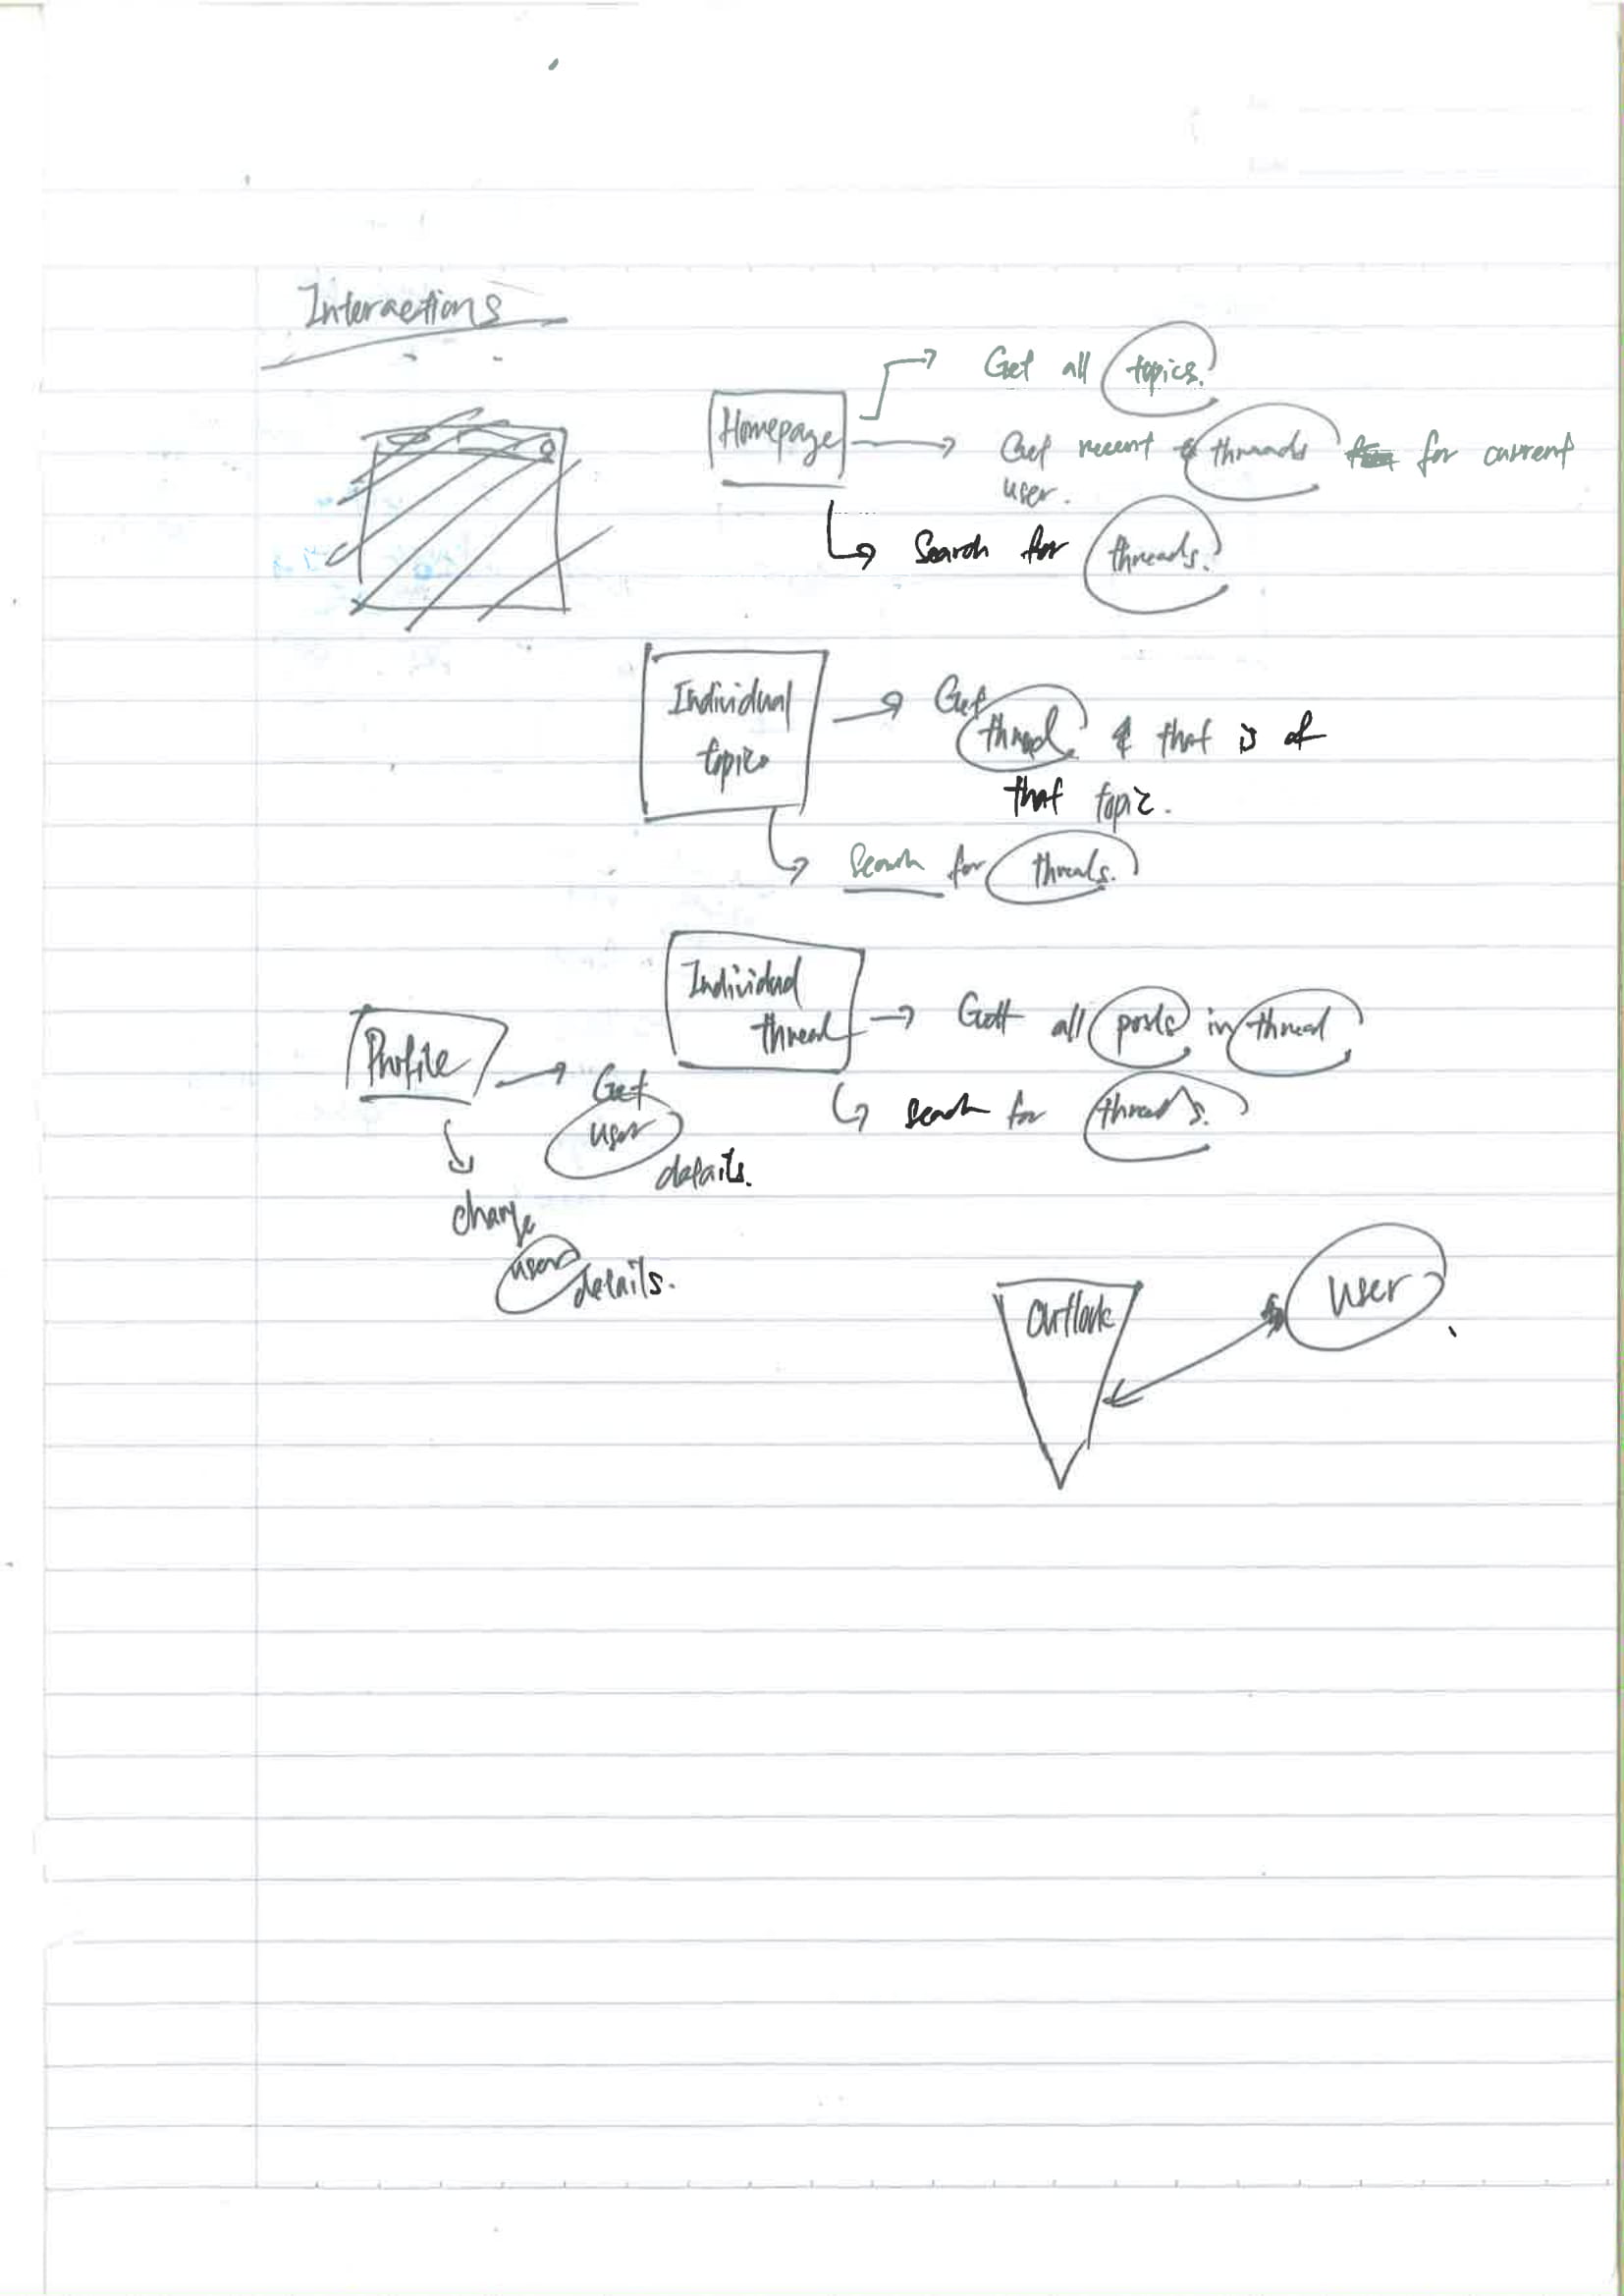 Interactions
Homepage
Get all topics.
Get recent threads for current
user.
Search for threads.
Individual
topics
Get
thread that is of
that topic.
Search for threads.
Individual
thread
Gett all posts in thread
search for threads.
Profile
Get
user
details.
change
user
details.
Outlook
user